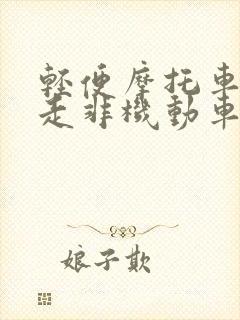 輕便摩托車
走非機動車
娘子欺